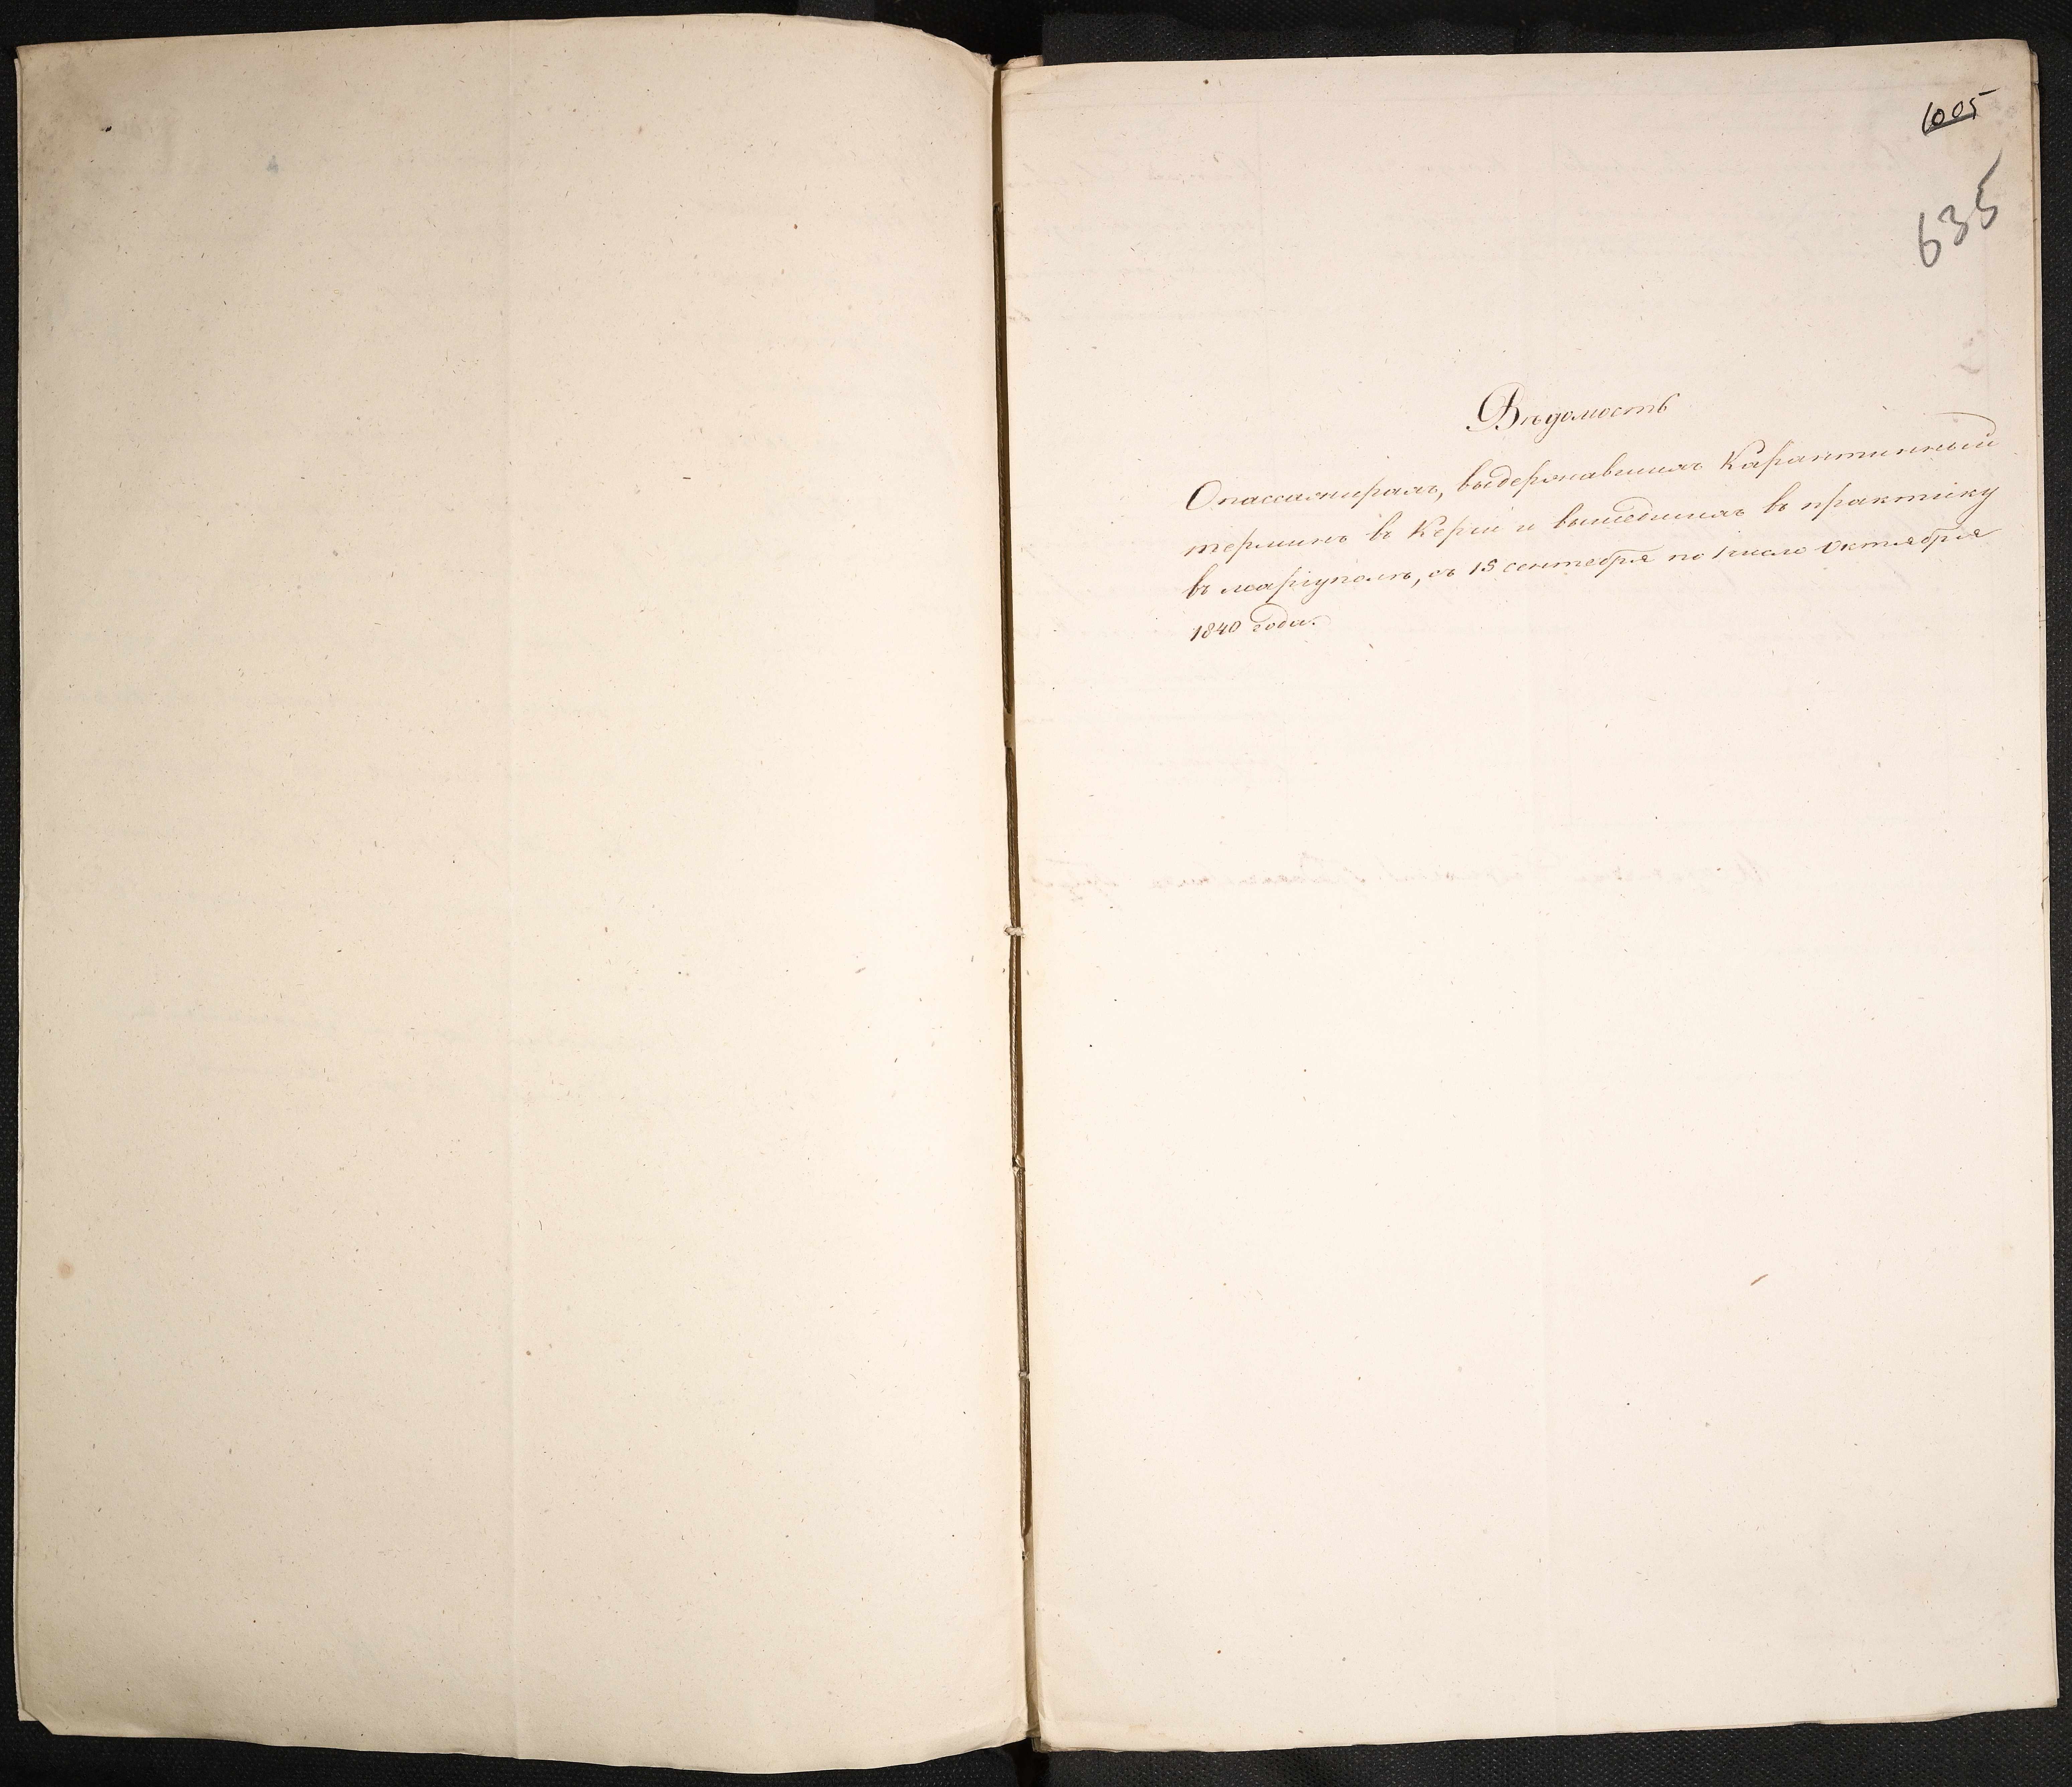 1005
635
Вѣдомость
О пассажирахъ, выдержавшихъ Карантинный
терминъ въ Керчи и вышедшихъ въ практику
въ маріуполѣ, съ 15 сентября по 1 число Октября
1840 года.